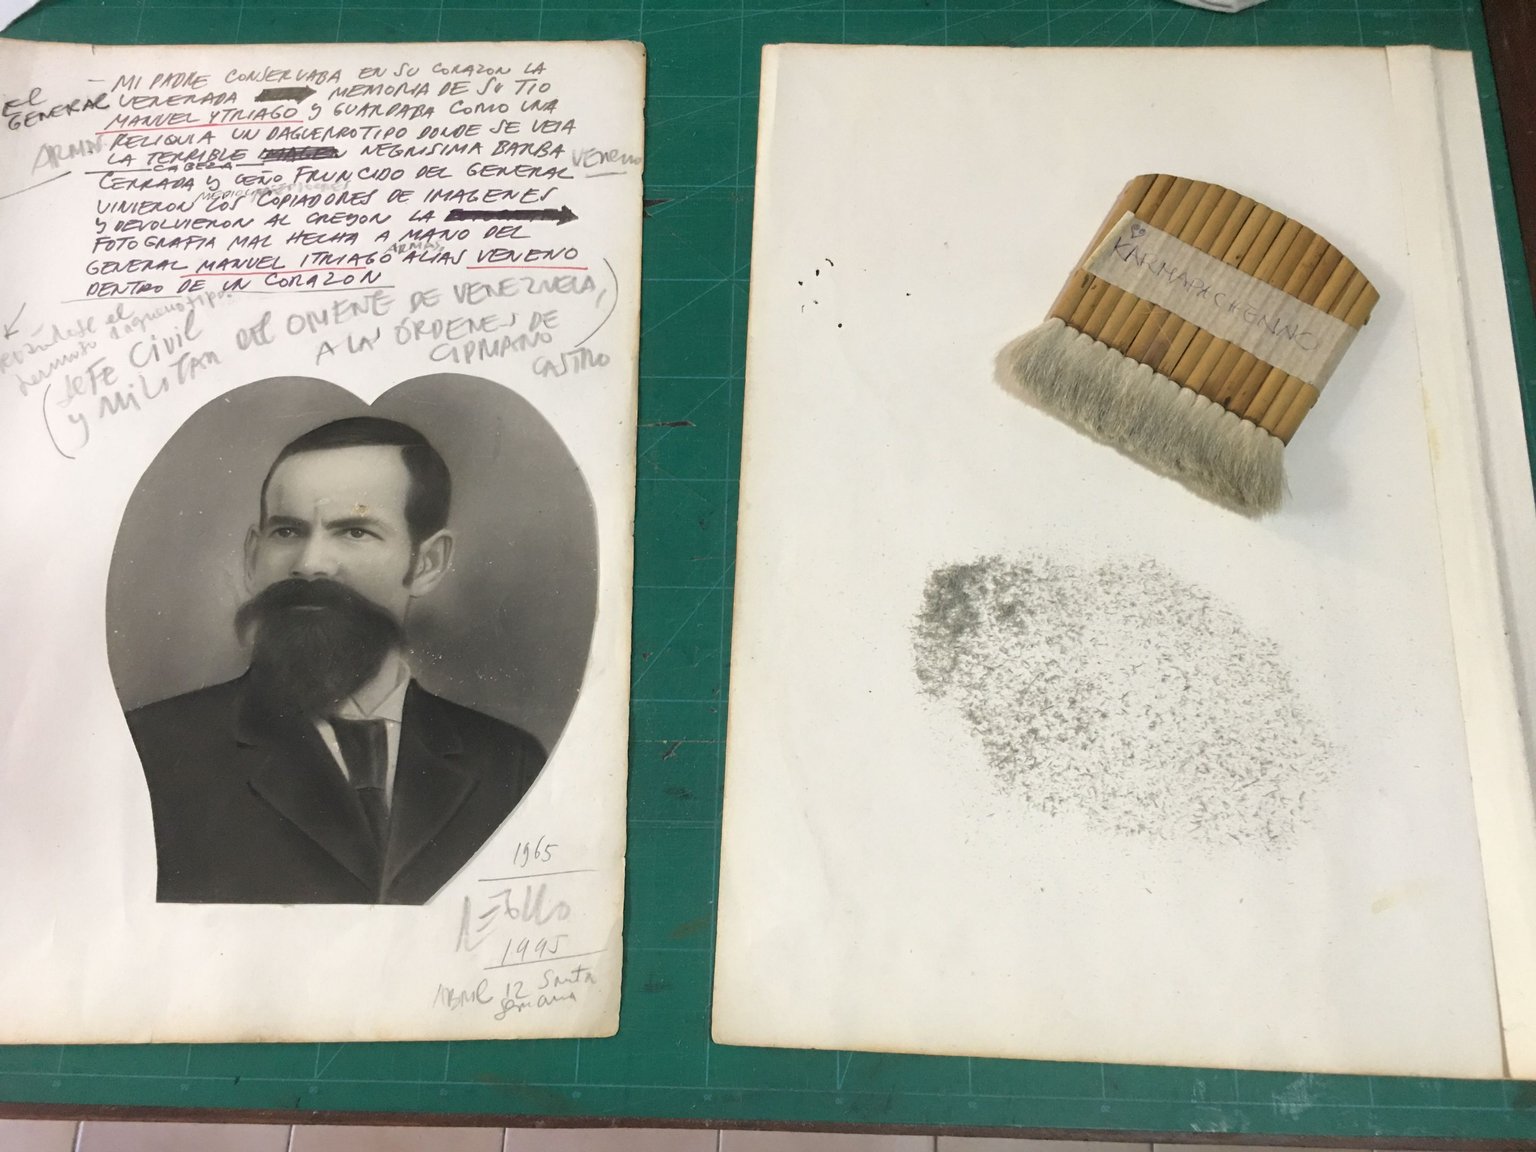 El
GENERAL
MI PADRE CONSERVABA EN SU CORAZON LA
VENERADA MEMORIA DE SU TIO
MANUEL YTRIAGO Y GUARDABA COMO UNA
RELIQUIA UN DAGUERROTIPO DONDE SE VEIA
LA TERRIBLE IMAGEN NEGRISIMA BARBA
CABEZA
VENENO
CERRADA Y CEÑO FRUNCIDO DEL GENERAL
VINIERON LOS COPIADORES DE IMAGENES
Y DEVOLVIERON AL CREYON LA
FOTOGRAFIA MAL HECHA A MANO DEL
ARMAS
GENERAL MANUEL ITRIAGO ALIAS VENENO
DENTRO DE UN CORAZON
el
daguerrotipo.
(JEFE CIVIL
Y MILITAR DEL ORIENTE DE VENEZUELA,
A LAS ÓRDENES DE
CIPRIANO
CASTRO)
1965
1995
ABRIL 12 Santa
Semana
KARMAPACHENNO